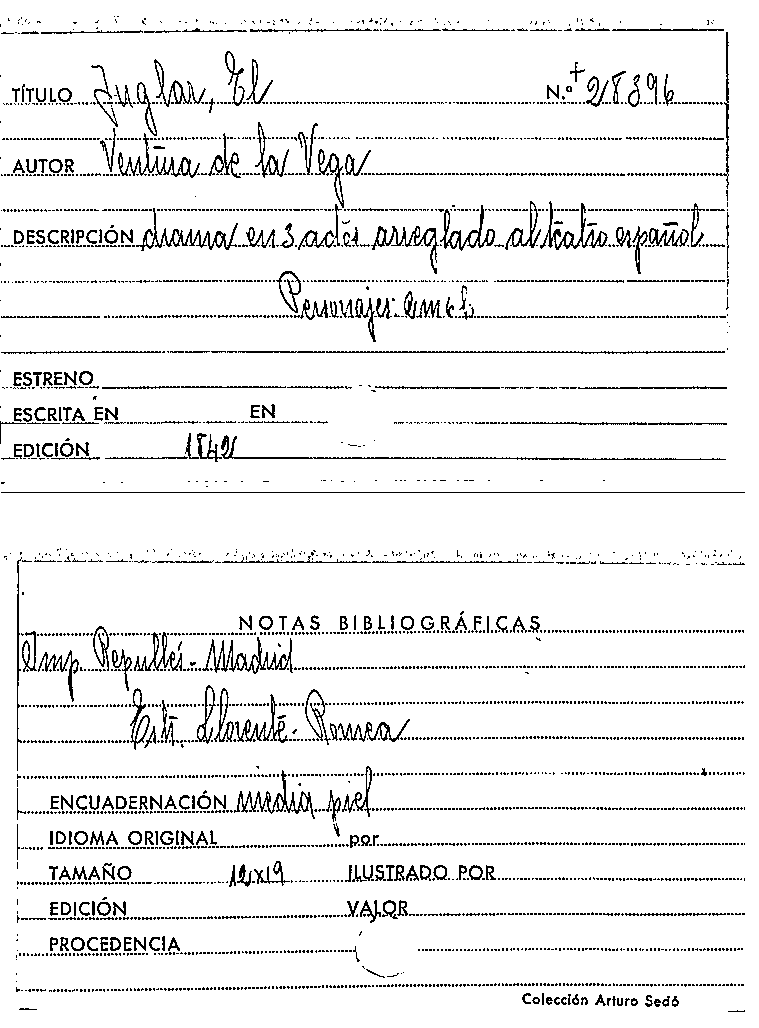 TÍTULO Juglar, El N.º + 28396
AUTOR Ventura de la Vega
DESCRIPCIÓN drama en 3 actos arreglado al teatro español
Personajes:
ESTRENO
ESCRITA EN EN
EDICIÓN 1842
NOTAS BIBLIOGRÁFICAS
Imp. Repullés - Madrid
Llorente - Romea
ENCUADERNACIÓN media piel
IDIOMA ORIGINAL por
TAMAÑO 12x19 ILUSTRADO POR
EDICIÓN VALOR
PROCEDENCIA
Colección Arturo Sedó